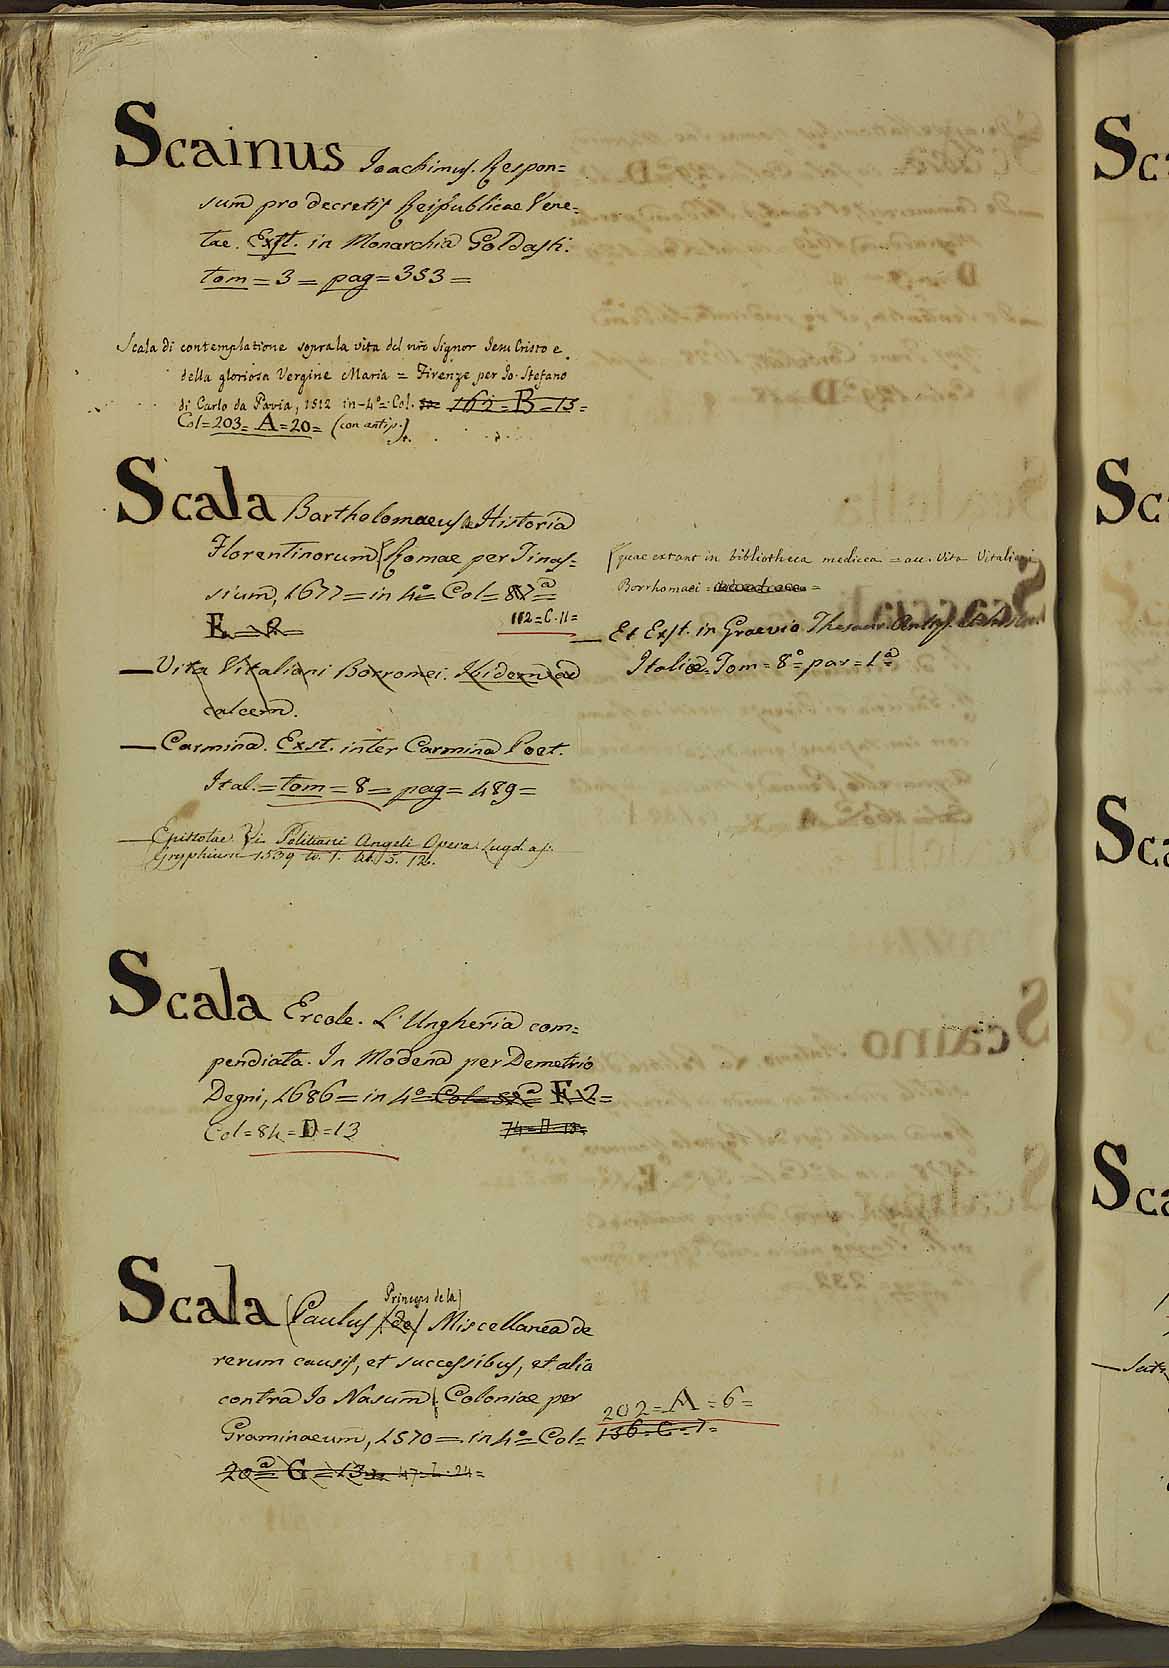 Scainus Joachimus. Respon=
sum pro decretis Reipublicae Vene=
tae. Exst. in Monarchia Goldasti.
tom = 3 = pag = 353 =
Scala di contemplatione sopra la vita del nro Signor Jesu Cristo e
della gloriosa Vergine Maria = Firenze per Jo. Stefano
di Carlo da Pavia, 1512 in-4º = Col. 162 = B = 13 =
Col = 203 = A = 20 = (con antip.)
Scala Bartholomaeus de Historia
Florentinorum Romae per Tinas=
sium, 1677 = in 4º = Col = 87ª =
E = 2 =
112 = C. 11 =
(quae extant in bibliotheca medicea = ac. Vita Vitaliani
Borrhomaei =
— Et Exst. in Graevio Thesaur. Antiq.
Italiae. Tom = 8º = par = 1ª =
— Vita Vitaliani Borromei. Ibidem ad
calcem.
— Carmina. Exst. inter Carmina Poet.
Ital. = tom = 8 = pag = 489 =
— Epistolae. V. in Politiani Angeli Opera Lugd. ap.
Gryphium 1539 to. 1. lib. 5. 12.
Scala Ercole. L'Ungheria com=
pendiata. In Modena per Demetrio
Degni, 1686 = in 4º = Col = 82ª = F. 2 =
Col = 84 = D = 13
74 = D. 13 =
Scala (Paulus (de) Princeps de la) Miscellanea de
rerum causis, et successibus, et alia
contra Jo Nasum Coloniae per
Graminaeum, 1570 = in 4º = Col = 136 = C = 7 =
202 = A = 6 =
20ª = G = 13 = 47 = L. 24 =
Sca
Sca
Sca
Sca